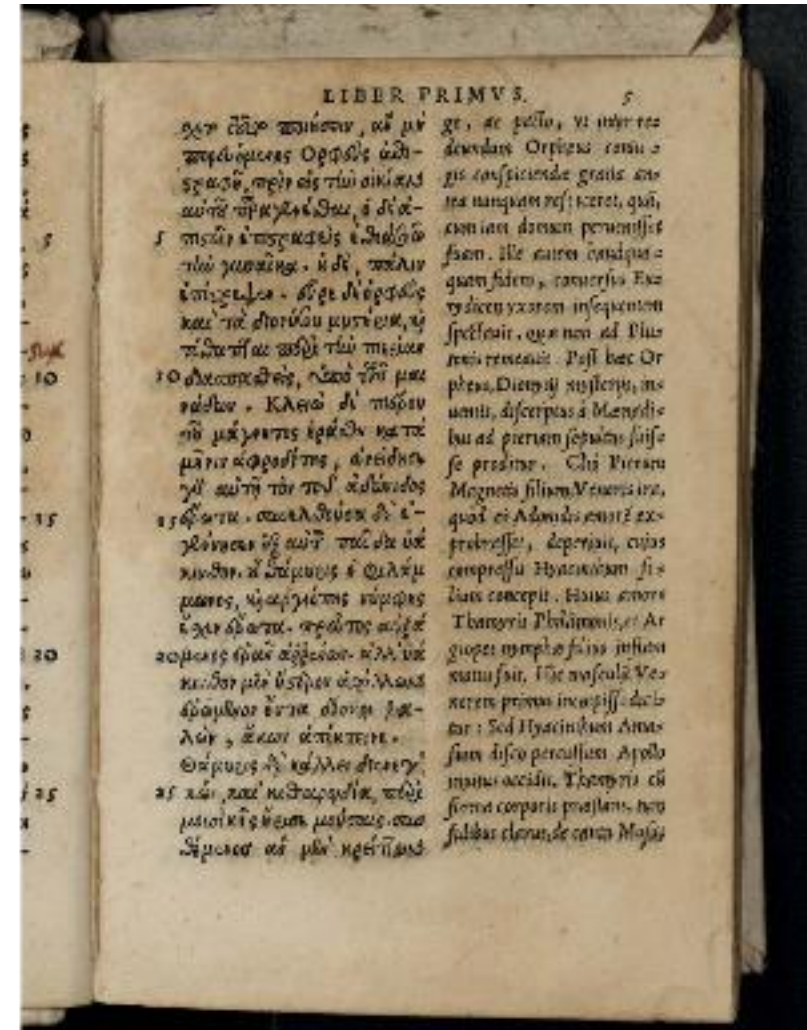 LIBER PRIMVS. 5
ποιήσειν, αὖ μὴ
πορευόμενος Ορφεὺς ἐπι-
στραφῇ, πρὶν εἰς τὴν οἰκίαν
αὐτοῦ παραγενέσθαι, ὁ δὲ ἀ-
5 πιστῶν ἐπιστραφεὶς ἐθεάσατο
τὴν γυναῖκα. ἡ δὲ, πάλιν
ὑπέστρεψεν. εὗρε δὲ ὀρφεὺς
καὶ τὰ διονύσου μυστήρια, καὶ
τέθαπται περὶ τὴν πιερίαν
10 διασπασθεὶς, ὑπὸ τῶν μαι
νάδων. Κλειὼ δὲ πιέρου
τοῦ μάγνητος ἠράσθη κατὰ
μῆνιν ἀφροδίτης, ὠνείδισεν
γὰρ αὐτῇ τὸν τοῦ ἀδώνιδος
15 ἔρωτα. συνελθοῦσα δὲ ἐ-
γέννησεν ἐξ αὐτοῦ παῖδα ὑά
κινθον. οὗ θάμυρις ὁ φιλάμ
μωνος, καὶ ἀργιόπης νύμφης
ἔχων ἔρωτα. πρῶτος ἀρξά
20 μενος ἐρᾷν ἀῤῥένων. ἀλλ' ὑά
κινθον μὲν ὕστερον ἀπόλλων
ἐρώμενον ὄντα δίσκῳ βα-
λὼν, ἄκων ἀπέκτεινε.
Θάμυρις δὲ κάλλει διενεγ'
25 κὼν, καὶ κιθαρῳδίᾳ, περὶ
μουσικῆς ἤρισε μούσαις. συν
θέμενος ἂν μὲν κρείττων
ge, ac pacto, vt inter rea
deundum Orpheus coniu-
gis conspiciendæ gratia an-
tea nunquam respiceret, quā,
cum iam domum peruenisset
suam. Ille autem
quam fidens, conuersus Eu-
rydicen vxorem insequentem
spectauit, quæ non ad Plu-
tonis remeauit. Post hæc Or
pheus, Dionysij mysterijs, in-
uentis, discerptus à Mænadi-
bus ad pieriam sepultus fuis-
se proditur. Clio Pierum
Magnetis filium, Veneris ira,
quod ei Adonidis amorē ex-
probrasset, deperijt, cuius
compressu Hyacinthum fi-
lium concepit. Huius amore
Thamyris Philammonis, et Ar
giopes nymphæ filius
fuit. Hic masculā Ve-
nerem primus incœpisse dici-
tur: Sed Hyacinthum Ama-
sium disco percussum Apollo
inuitus occidit. Thamyris cū
forma corporis præstans, tum
fidibus clarus, de cantu Musas